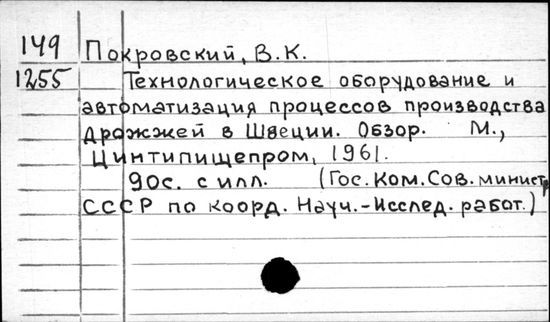 149 Покровский, В.К.
1255 Технологическое оборудование и
автоматизация процессов производства
дрожжей в Швеции. Обзор. М.,
Цинтипищепром, 1961.
90с. с илл. (Гос. Ком. Сов. министр
СССР по коорд. Науч.-Исслед. работ.)